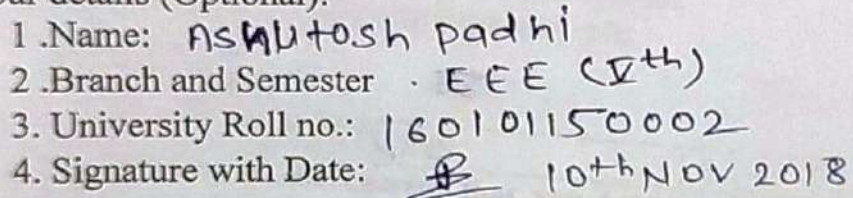 1 .Name: Ashutosh padhi
2 .Branch and Semester . EEE (Vth)
3. University Roll no.: 160101150002
4. Signature with Date: 10th NOV 2018